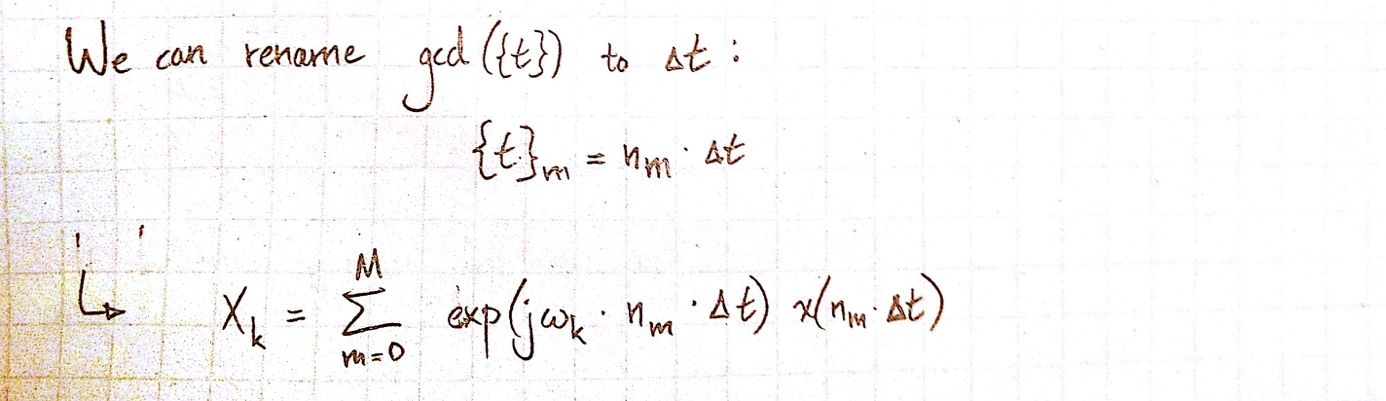 We can rename gcd({t}) to Δt :
{t}_m = n_m · Δt
↳ X_k = Σ_{m=0}^{M} exp(jω_k · n_m · Δt) x(n_m · Δt)